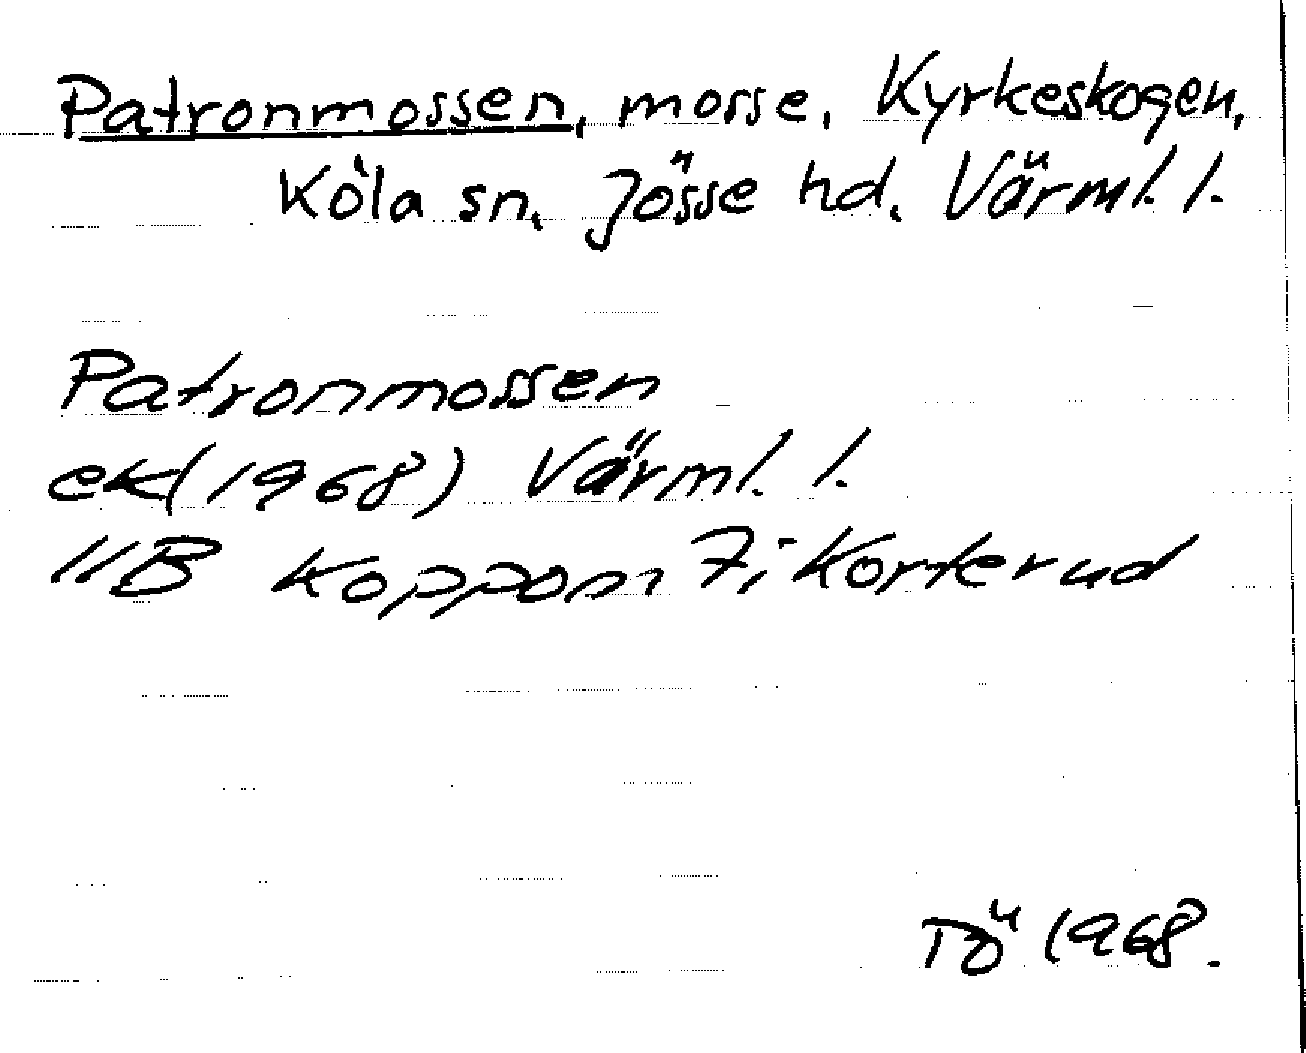 Patronmossen, mosse, Kyrkeskogen,
Köla sn, Jösse hd. Värml. l.
Patronmossen
ek (1968) Värml. l.
11B Koppom 7i Korterud
Tö 1968.